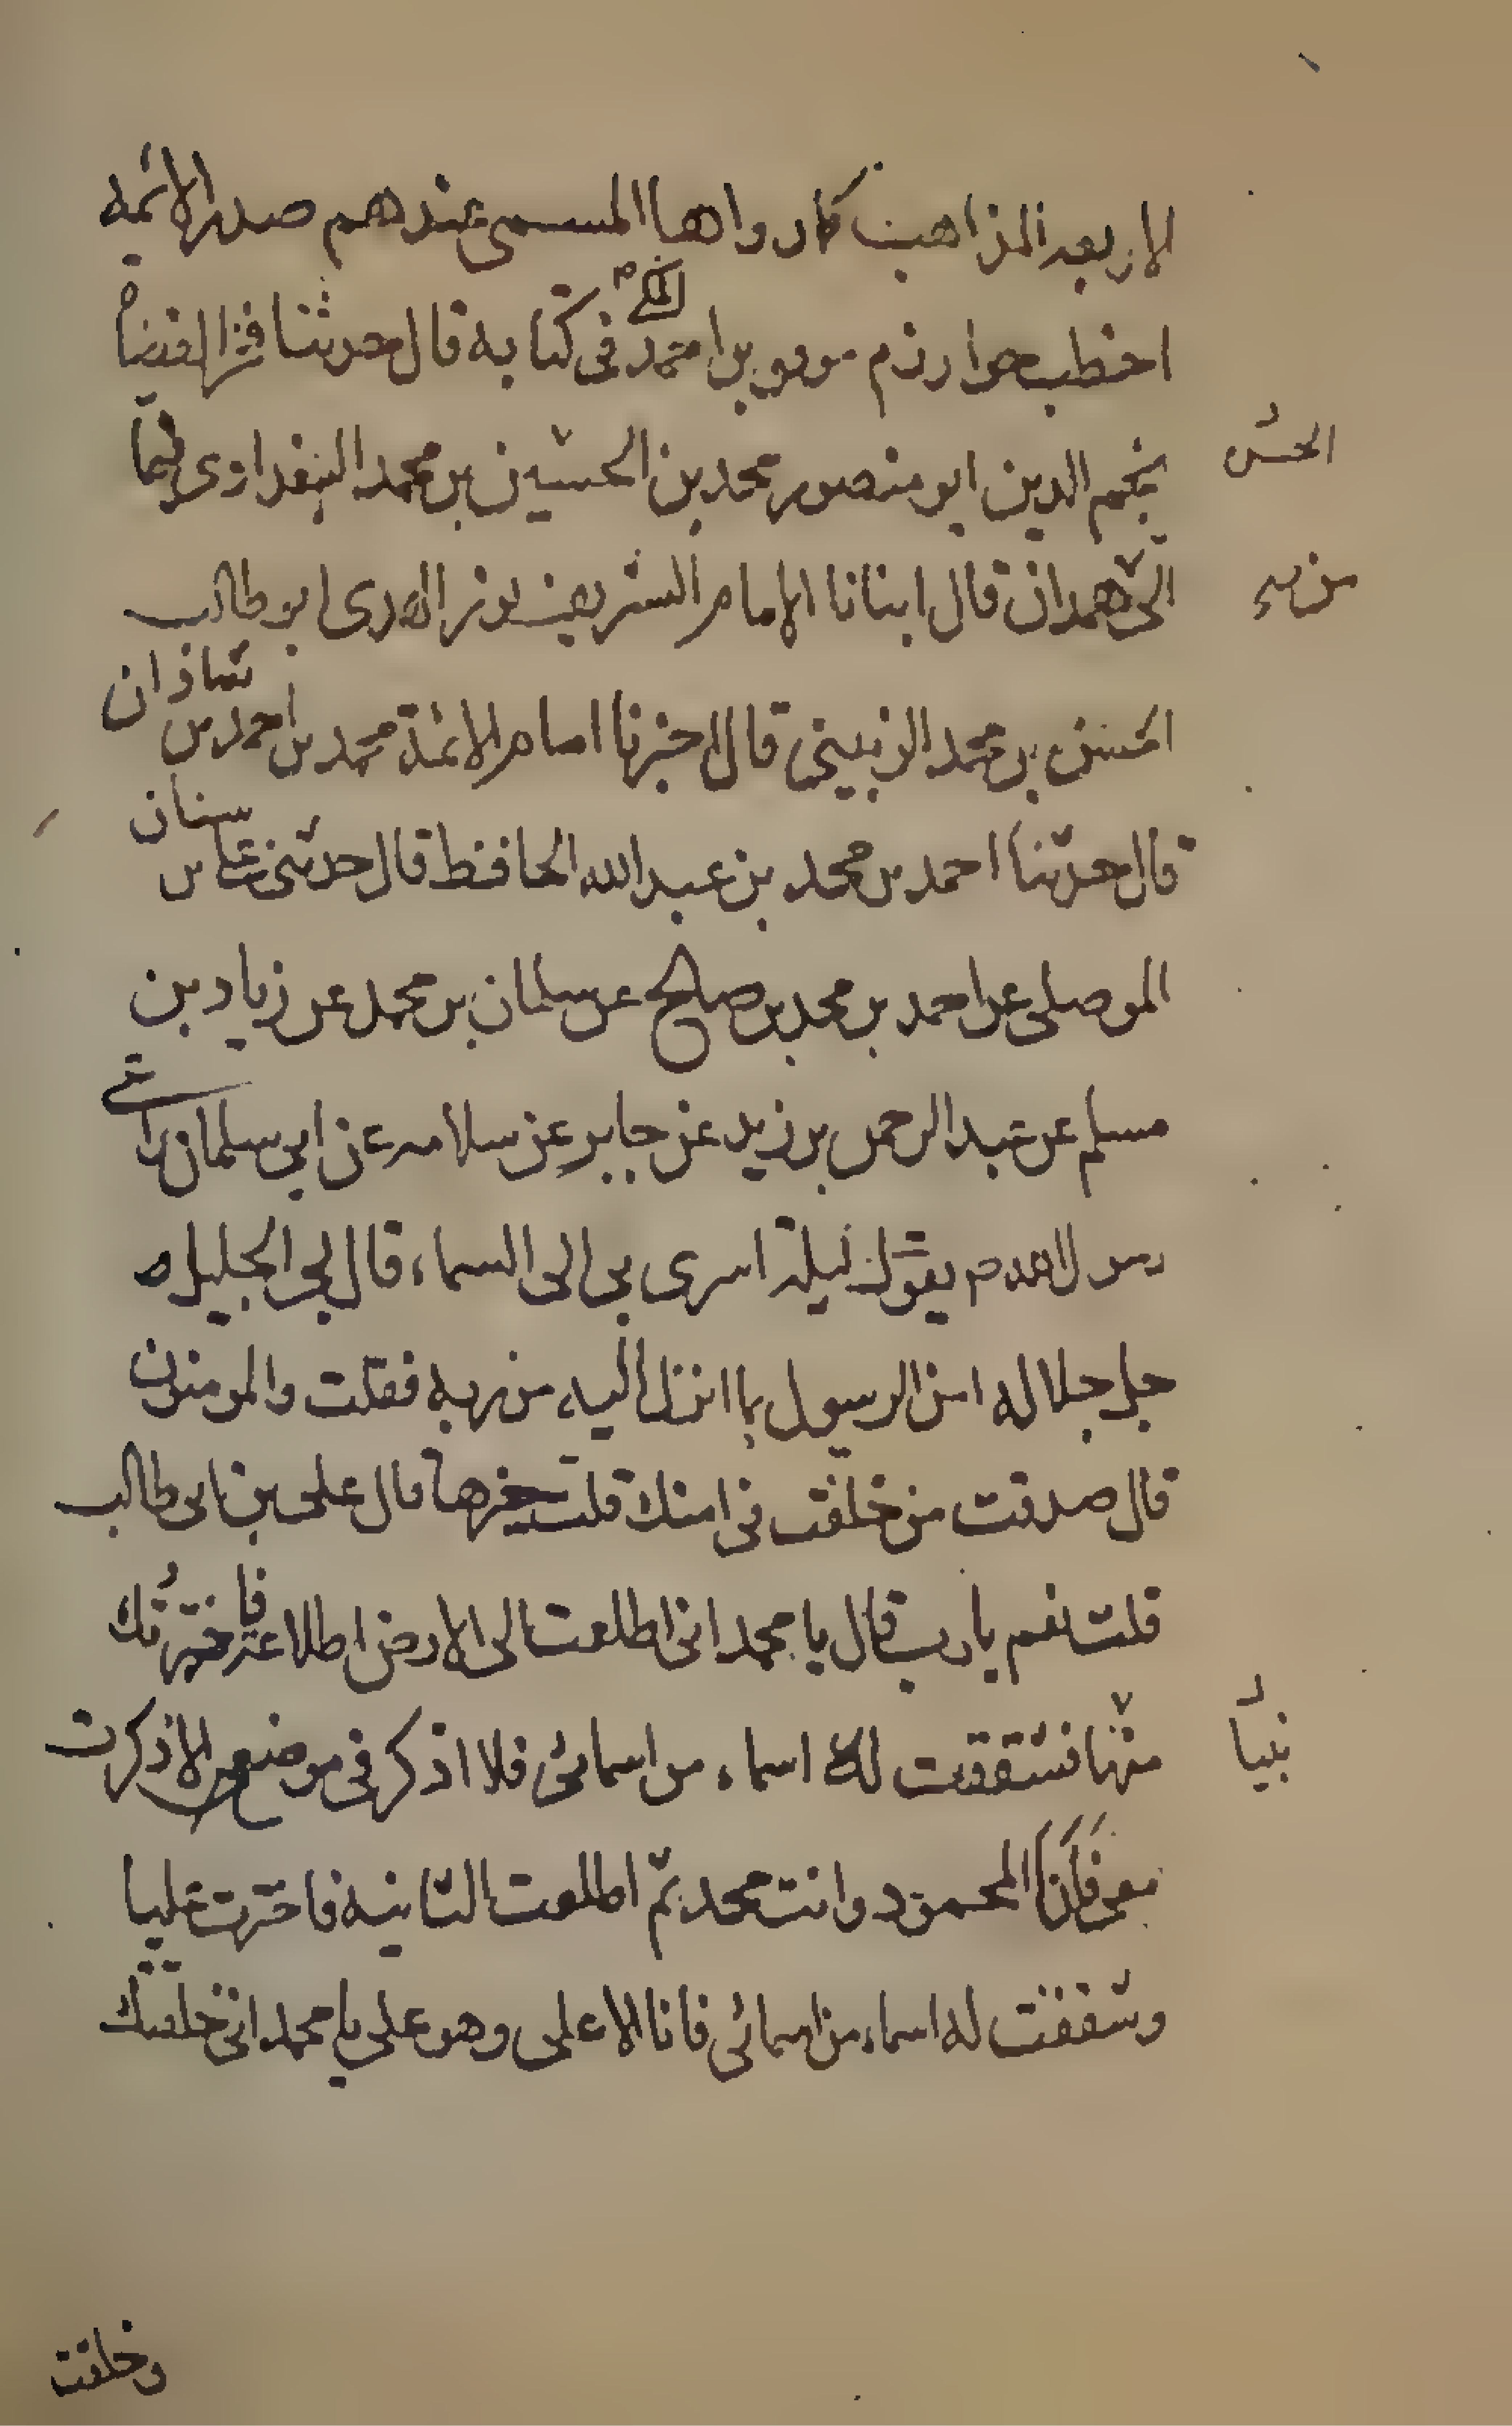 الاربعه المذاهب كما رواها المسمى عندهم صدر الائمه
اخطب خوارزم موفق بن احمد المكي في كتابه قال حدثنا فخر القضاة
نجم الدين ابو منصور محمد بن الحسين بن محمد البغدادي فيما
الحسن
الى همدان قال انبانا الامام الشريف نور الهدى ابو طالب
الحسن بن محمد الزينبي قال اخبرنا امام الائمة محمد بن احمد بن شاذان
قال حدثنا احمد بن محمد بن عبد الله الحافظ قال حدثني علي بن سنان
الموصلي عن احمد بن محمد بن صالح عن سلمان بن محمد عن زياد بن
مسلم عن عبد الرحمن بن زيد عن جابر عن سلامه عن ابي سلمان راعي
رسول الله ص يقول ليلة اسرى بي الى السماء قال لي الجليل
جل جلاله امن الرسول بما انزل اليه من ربه فقلت والمومنون
قال صدقت من خلفت في امتك قلت خيرها قال علي بن ابي طالب
قلت نعم يا رب قال يا محمد اني اطلعت الى الارض اطلاعة فاخترتك
منها فشققت لك اسماء من اسمائي فلا اذكر في موضع الا ذكرت
نبيا
معي فَاَنَا المحمود وانت محمد ثم اطلعت الثانيه فاخترت عليا
وشققت له اسماء من اسمائي فانا الاعلى وهو علي يا محمد اني خلقتك
وخلقت